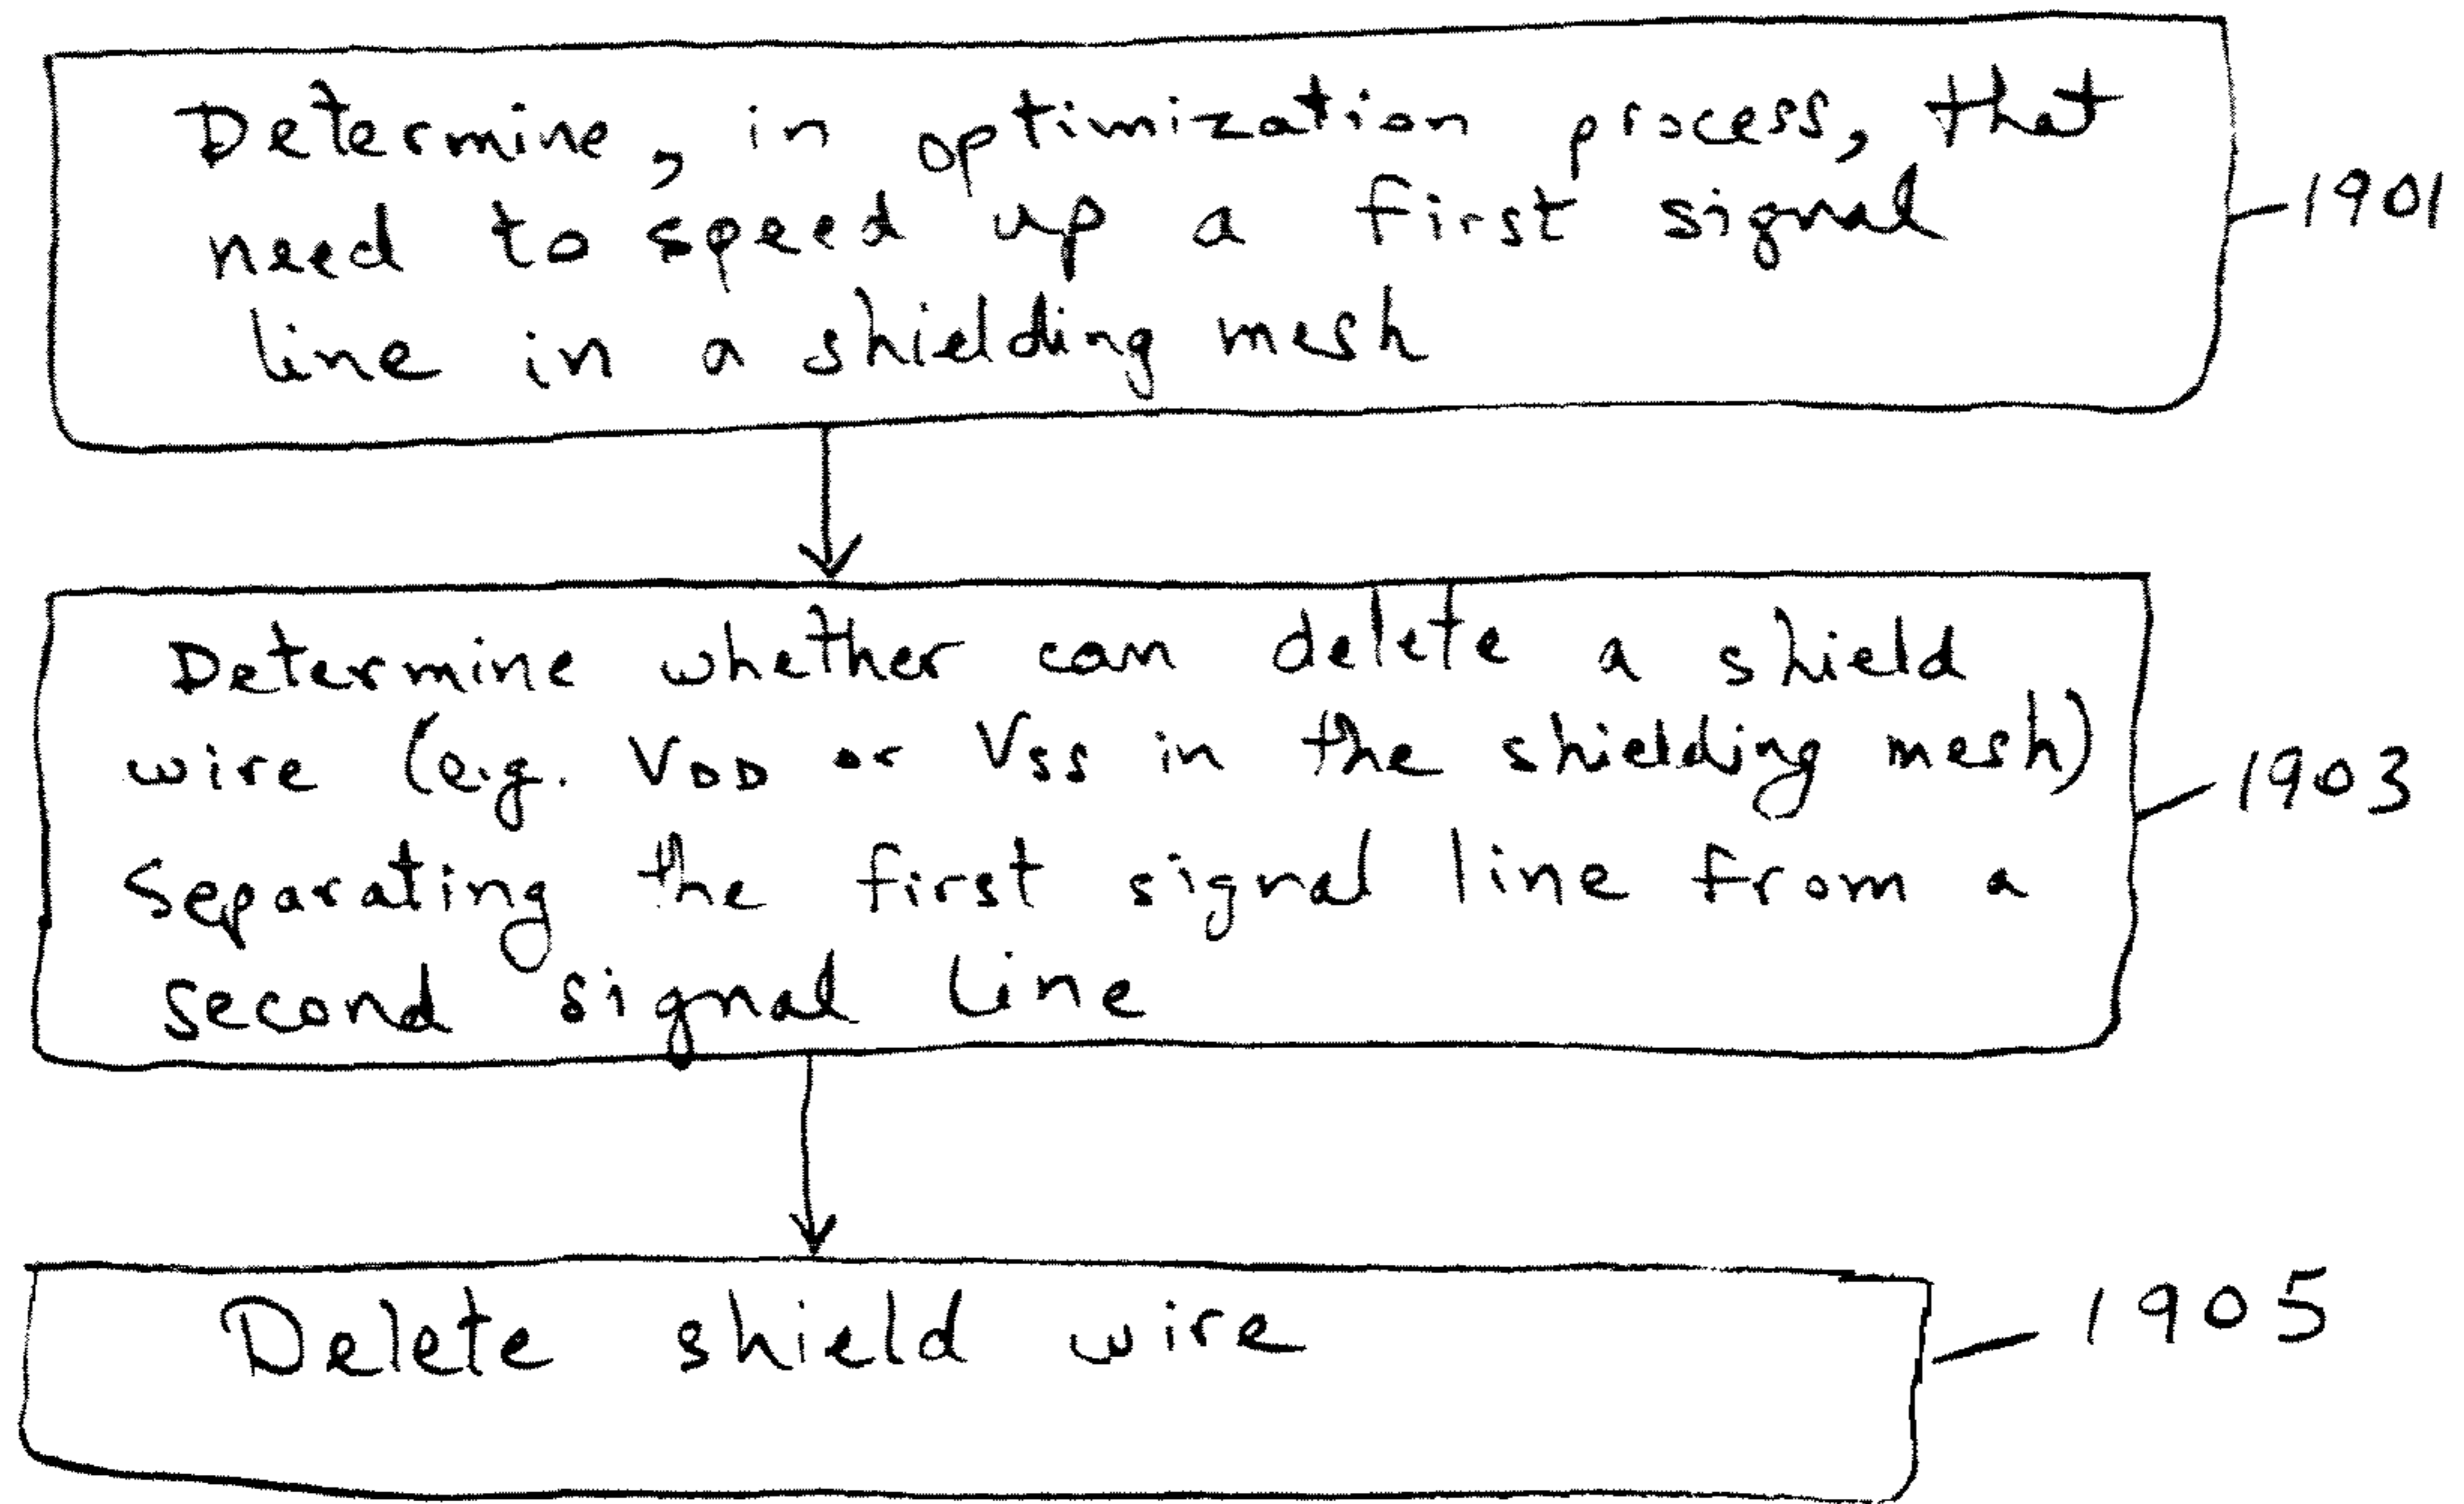 Determine, in optimization process, that
need to speed up a first signal
line in a shielding mesh
1901
Determine whether can delete a shield
wire (e.g. VDD or VSS in the shielding mesh)
separating the first signal line from a
second signal line
1903
Delete shield wire
1905